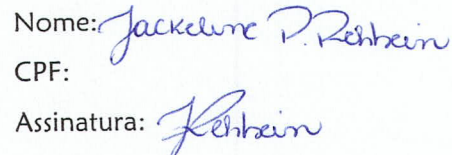 Nome: Jackeline P. Rehbein
CPF:
Assinatura: JRehbein